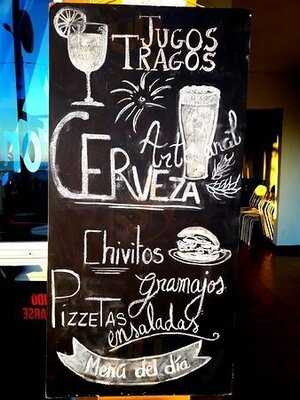 Jugos
Tragos
Artesanal
Cerveza
Chivitos
Gramajos
Pizzetas
ensaladas
Menú del día